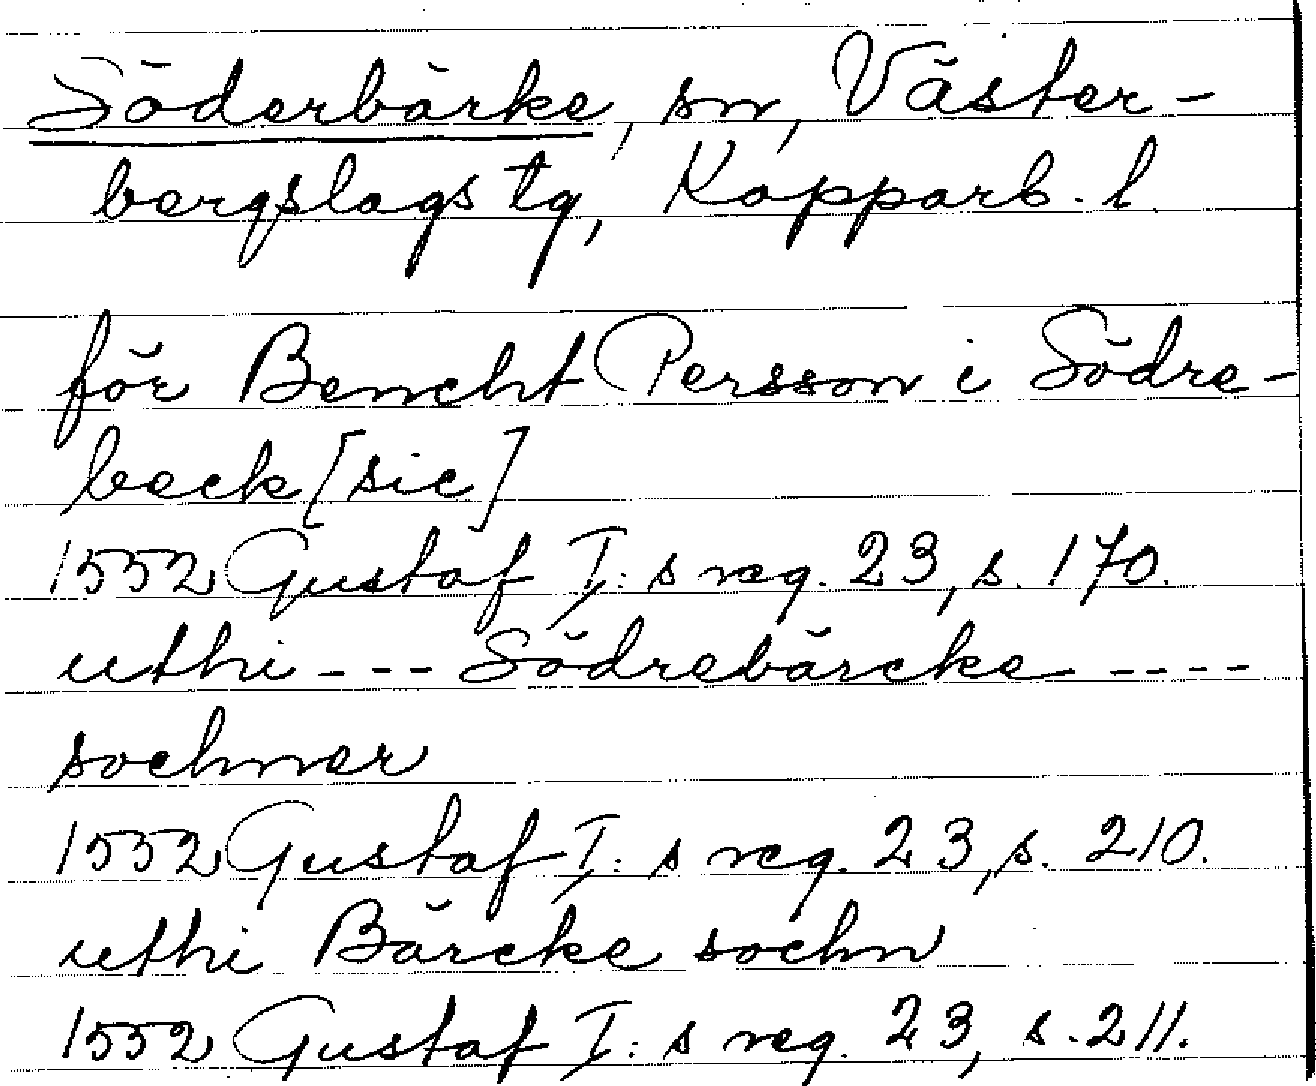 Söderbärke, sn, Väster-
bergslags tg, Kopparb. l.
för Bencht Persson i Södre-
beck [sic]
1552 Gustaf I:s reg. 23, s. 170.
uthi --- Södrebärcke ----
sochner
1552 Gustaf I:s reg. 23, s. 210.
uthi Bärcke sochn
1552 Gustaf I:s reg. 23, s. 211.